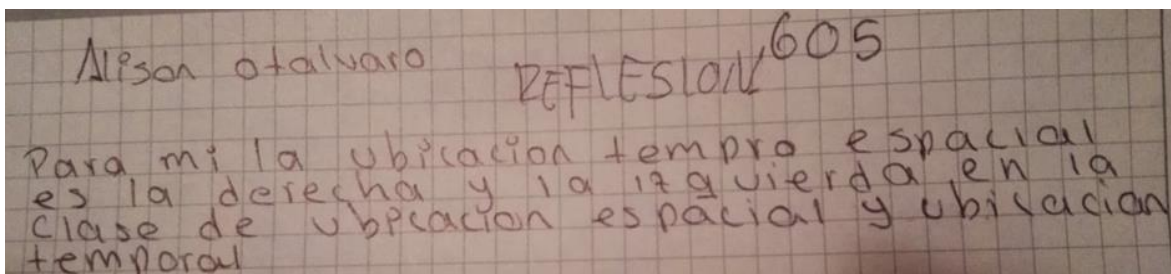 Alison otalvaro
REFLESION 605
Para mi la ubicacion tempro espacial
es la derecha y la izquierda en la
clase de ubicacion espacial y ubicacion
temporal